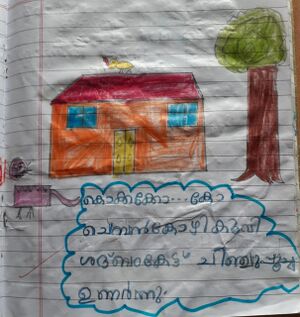 കൊക്കക്കോ...കോ
ചെമ്പൻകോഴി കൂവി
ശബ്ദംകേട്ട് ചിഞ്ചുപൂച്ച
ഉണർന്നു.